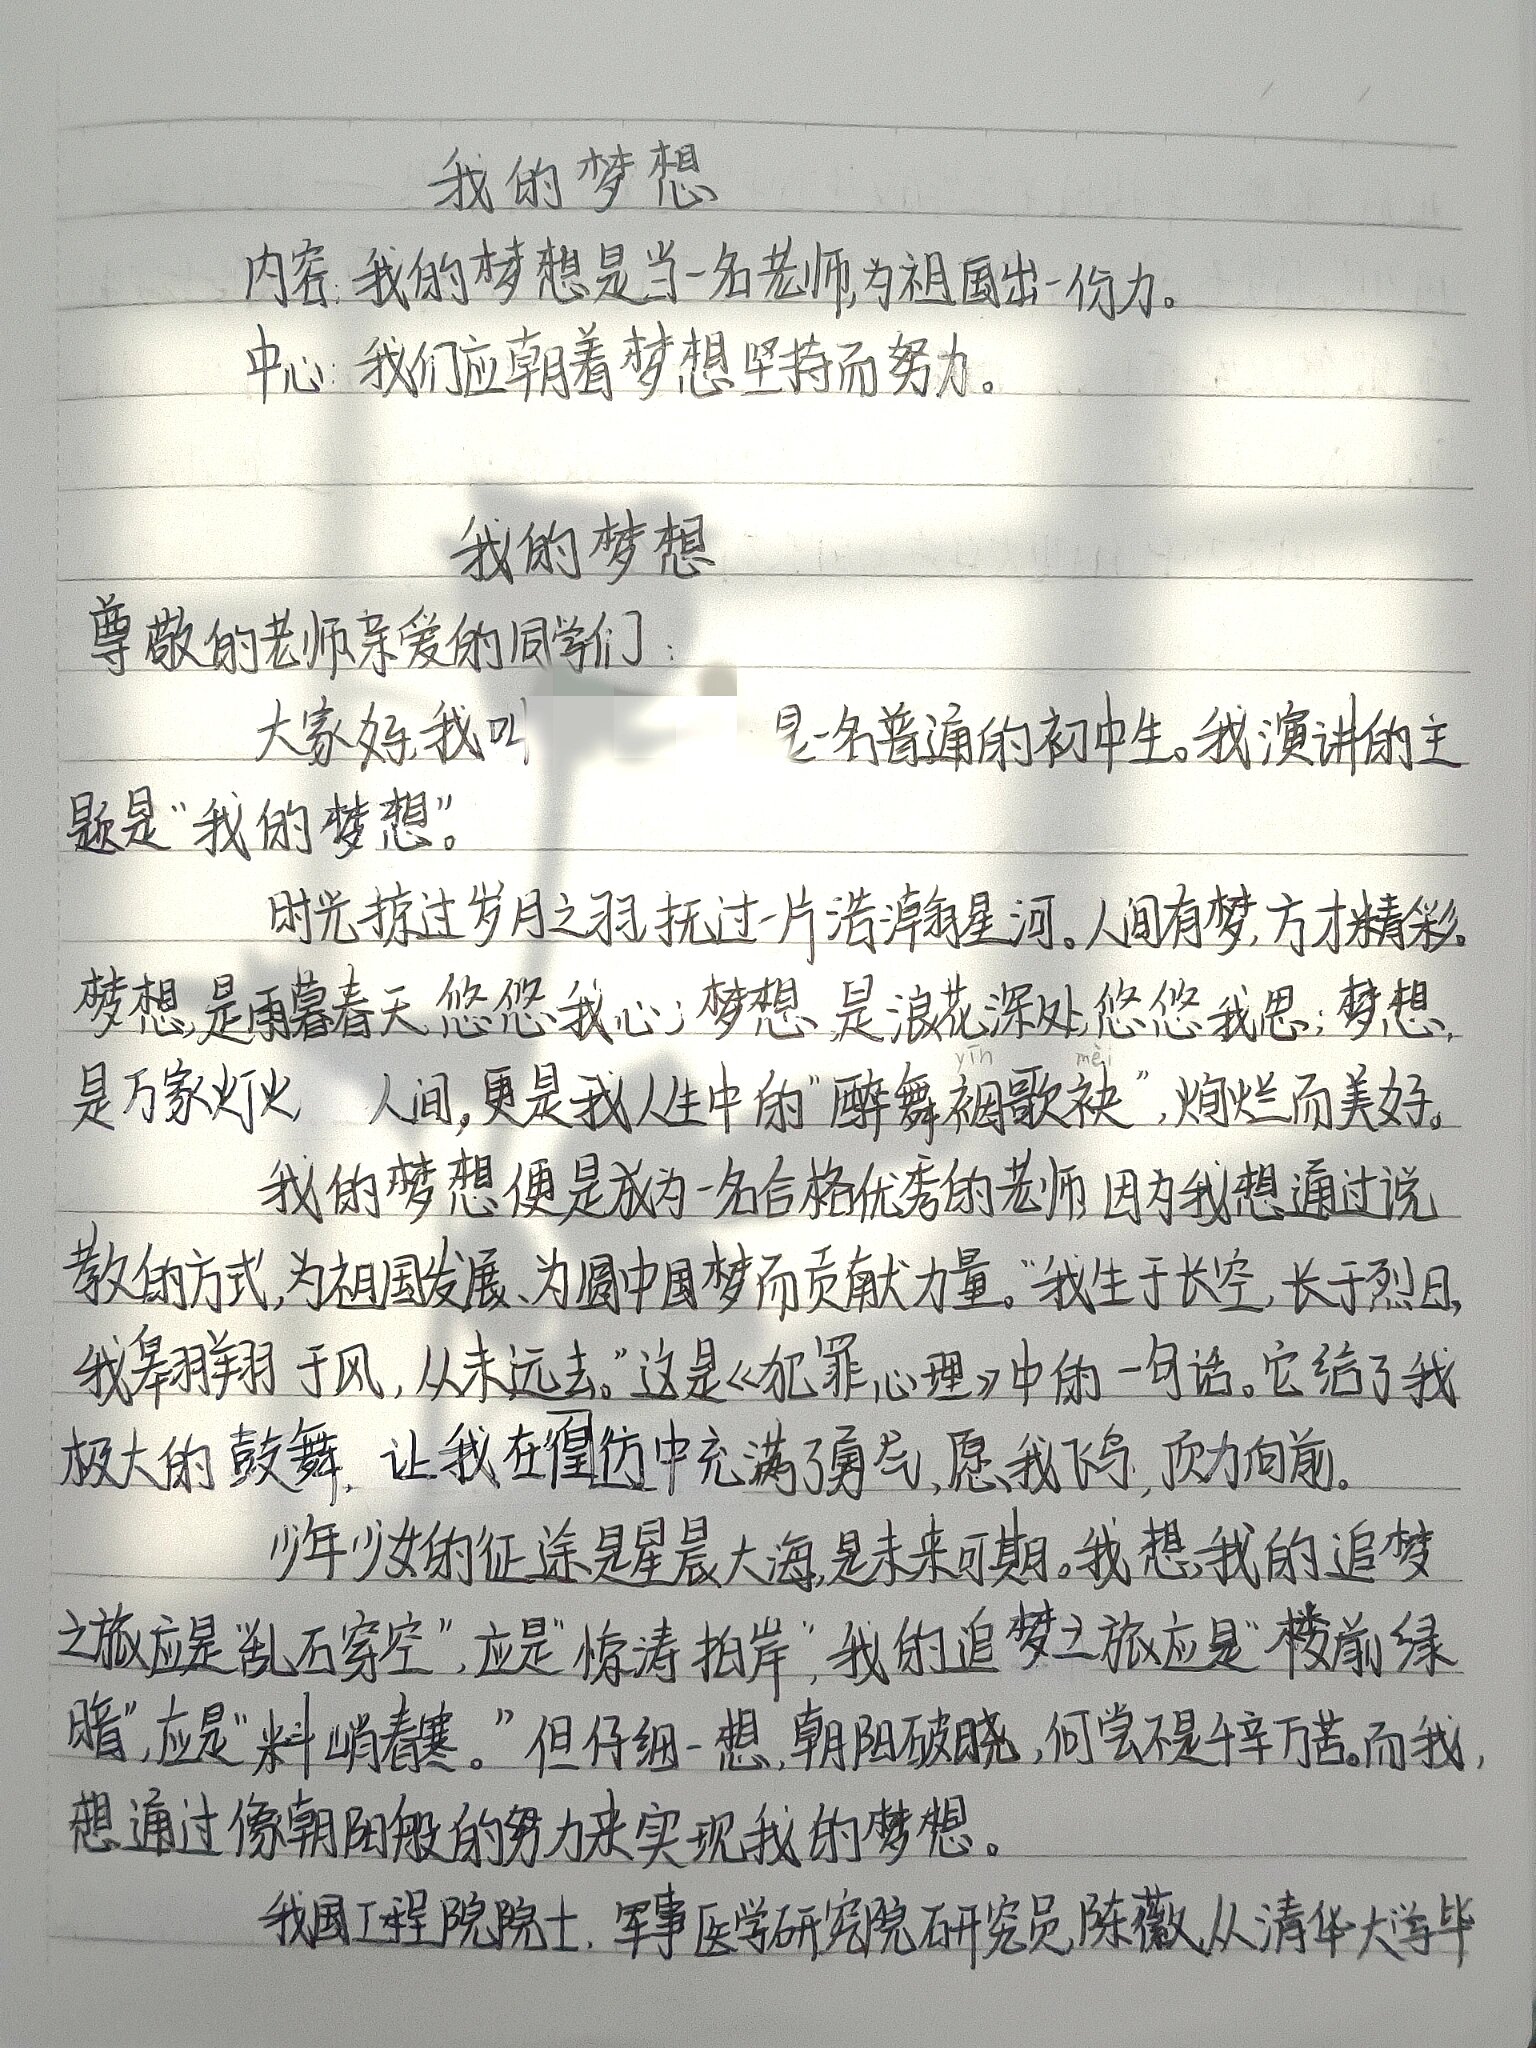 我的梦想
内容:我的梦想是当一名老师,为祖国出一份力。
中心:我们应朝着梦想坚持而努力。
我的梦想
尊敬的老师、亲爱的同学们:
大家好,我叫 是一名普通的初中生。我演讲的主
题是“我的梦想”。
时光掠过岁月之羽,抚过一片浩瀚星河。人间有梦,方才精彩。
梦想,是雨暮春天,悠悠我心;梦想,是浪花深处,悠悠我思;梦想,
yīn mèi
是万家灯火 人间,更是我人生中的“醉舞裀歌袂”,炯烂而美好。
我的梦想便是成为一名合格优秀的老师,因为我想通过说
教的方式,为祖国发展、为圆中国梦而贡献力量。“我生于长空,长于烈日,
我翱翔于风,从未远去。”这是《犯罪心理》中的一句话。它给了我
极大的鼓舞,让我在徨彷中充满了勇气,愿我飞鸟,顶力向前。
少年少女的征途是星晨大海,是未来可期。我想,我的追梦
之旅应是“乱石穿空”,应是“惊涛拍岸”,我的追梦之旅应是“楼前绿
暗”,应是“料峭春寒。”但仔细一想,朝阳破晓,何尝不是千辛万苦。而我,
想通过像朝阳般的努力来实现我的梦想。
我国工程院院士,军事医学研究院研究员陈薇,从清华大学毕